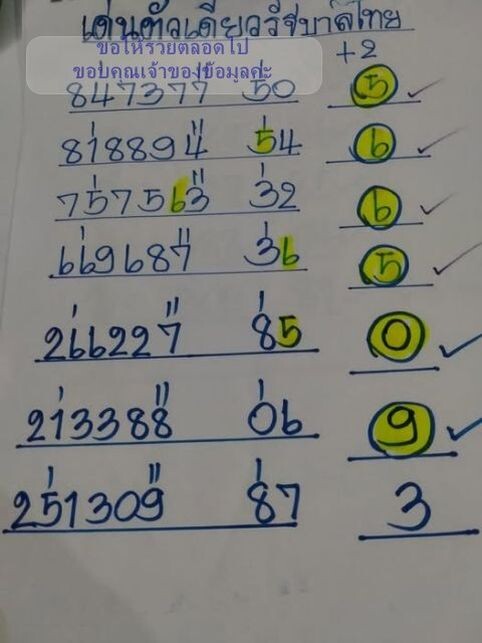 เด่นตัวเดียวรัฐบาลไทย
ขอให้รวยตลอดไป
ขอบคุณเจ้าของข้อมูลค่ะ
+2
847377 50 5 ✓
818894 54 6 ✓
757563 32 6 ✓
669687 36 5 ✓
266227 85 0 ✓
213388 06 9 ✓
251309 87 3